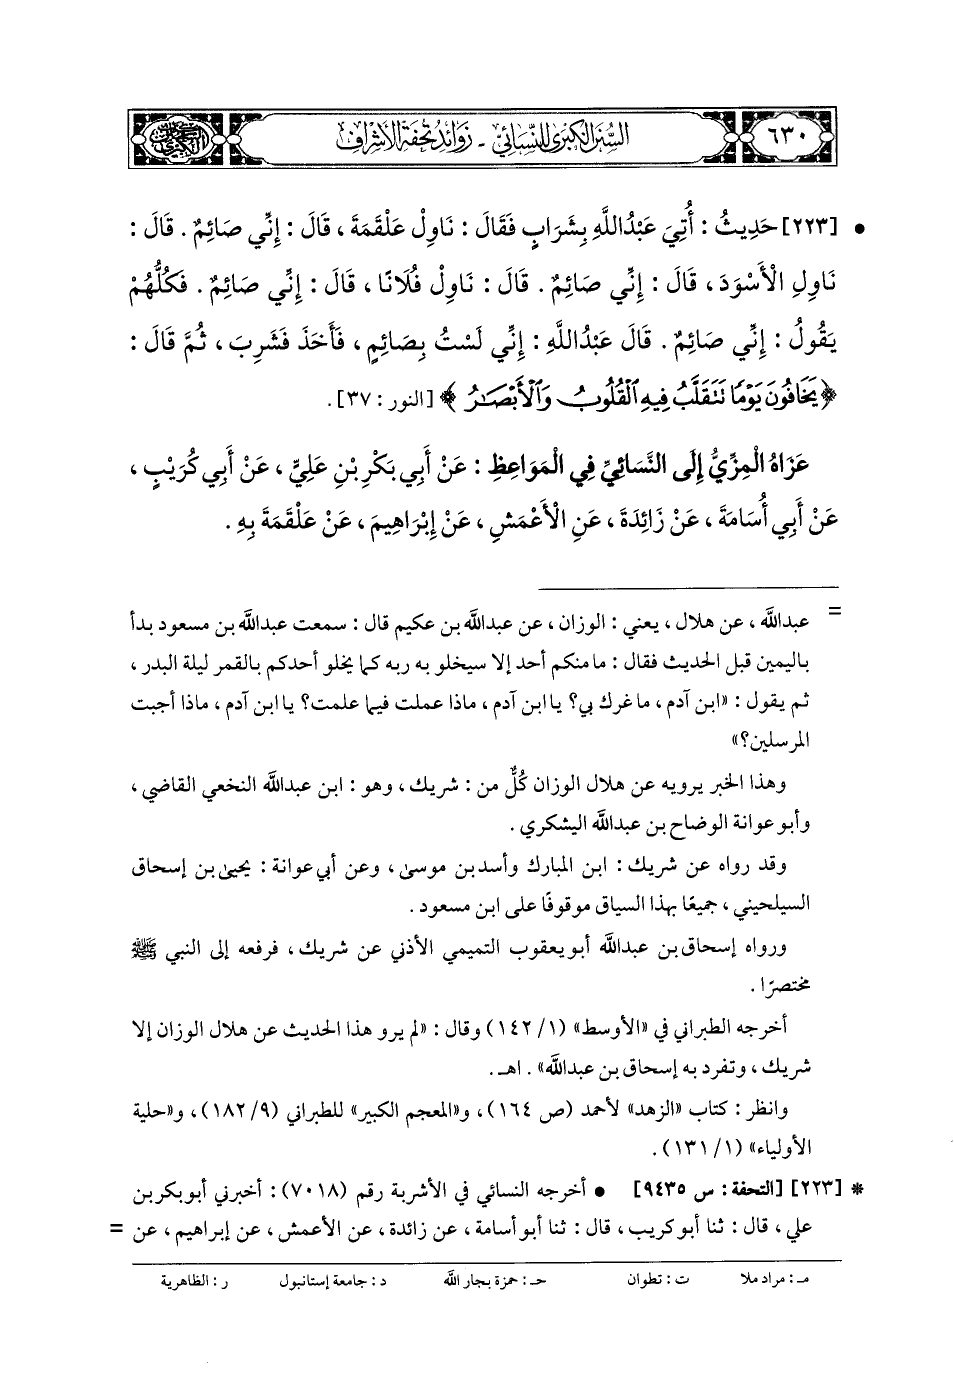 ٦٣٠
السُّنَنُ الكُبْرَى لِلنَّسَائِيّ - زَوَائِدُ تُحْفَةِ الأَشْرَافِ
• [٢٢٣] حَدِيثُ : أُتِيَ عَبْدُاللَّهِ بِشَرَابٍ فَقَالَ : نَاوِلْ عَلْقَمَةَ ، قَالَ : إِنِّي صَائِمٌ . قَالَ :
نَاوِلِ الْأَسْوَدَ ، قَالَ : إِنِّي صَائِمٌ . قَالَ : نَاوِلْ فُلَانًا ، قَالَ : إِنِّي صَائِمٌ . فَكُلُّهُمْ
يَقُولُ : إِنِّي صَائِمٌ . قَالَ عَبْدُاللَّهِ : إِنِّي لَسْتُ بِصَائِمٍ ، فَأَخَذَ فَشَرِبَ ، ثُمَّ قَالَ :
﴿يَخَافُونَ يَوْمًا تَتَقَلَّبُ فِيهِ ٱلْقُلُوبُ وَٱلْأَبْصَـٰرُ﴾ [النور : ٣٧] .
عَزَاهُ الْمِزِّيُّ إِلَى النَّسَائِيِّ فِي الْمَوَاعِظِ : عَنْ أَبِي بَكْرِ بْنِ عَلِيٍّ ، عَنْ أَبِي كُرَيْبٍ ،
عَنْ أَبِي أُسَامَةَ ، عَنْ زَائِدَةَ ، عَنِ الْأَعْمَشِ ، عَنْ إِبْرَاهِيمَ ، عَنْ عَلْقَمَةَ بِهِ .
= عبداللَّه ، عن هلال ، يعني : الوزان ، عن عبداللَّه بن عكيم قال : سمعت عبداللَّه بن مسعود بدأ
باليمين قبل الحديث فقال : ما منكم أحد إلا سيخلو به ربه كما يخلو أحدكم بالقمر ليلة البدر ،
ثم يقول : «ابن آدم ، ما غرك بي؟ يا ابن آدم ، ماذا عملت فيما علمت؟ يا ابن آدم ، ماذا أجبت
المرسلين؟»
وهذا الخبر يرويه عن هلال الوزان كُلٌّ من : شريك ، وهو : ابن عبداللَّه النخعي القاضي ،
وأبو عوانة الوضاح بن عبداللَّه اليشكري .
وقد رواه عن شريك : ابن المبارك وأسد بن موسى ، وعن أبي عوانة : يحيى بن إسحاق
السيلحيني ، جميعًا بهذا السياق موقوفًا على ابن مسعود .
ورواه إسحاق بن عبداللَّه أبو يعقوب التميمي الأذني عن شريك ، فرفعه إلى النبي ﷺ
مختصرًا .
أخرجه الطبراني في «الأوسط» (١/ ١٤٢) وقال : «لم يرو هذا الحديث عن هلال الوزان إلا
شريك ، وتفرد به إسحاق بن عبداللَّه» . اهـ .
وانظر : كتاب «الزهد» لأحمد (ص ١٦٤) ، و«المعجم الكبير» للطبراني (٩/ ١٨٢) ، و«حلية
الأولياء» (١/ ١٣١) .
* [٢٢٣] [التحفة : س ٩٤٣٥] • أخرجه النسائي في الأشربة رقم (٧٠١٨) : أخبرني أبو بكر بن
علي ، قال : ثنا أبو كريب ، قال : ثنا أبو أسامة ، عن زائدة ، عن الأعمش ، عن إبراهيم ، عن =
مـ : مراد ملا ت : تطوان حـ : حمزة بجار اللَّه د : جامعة إستانبول ر : الظاهرية